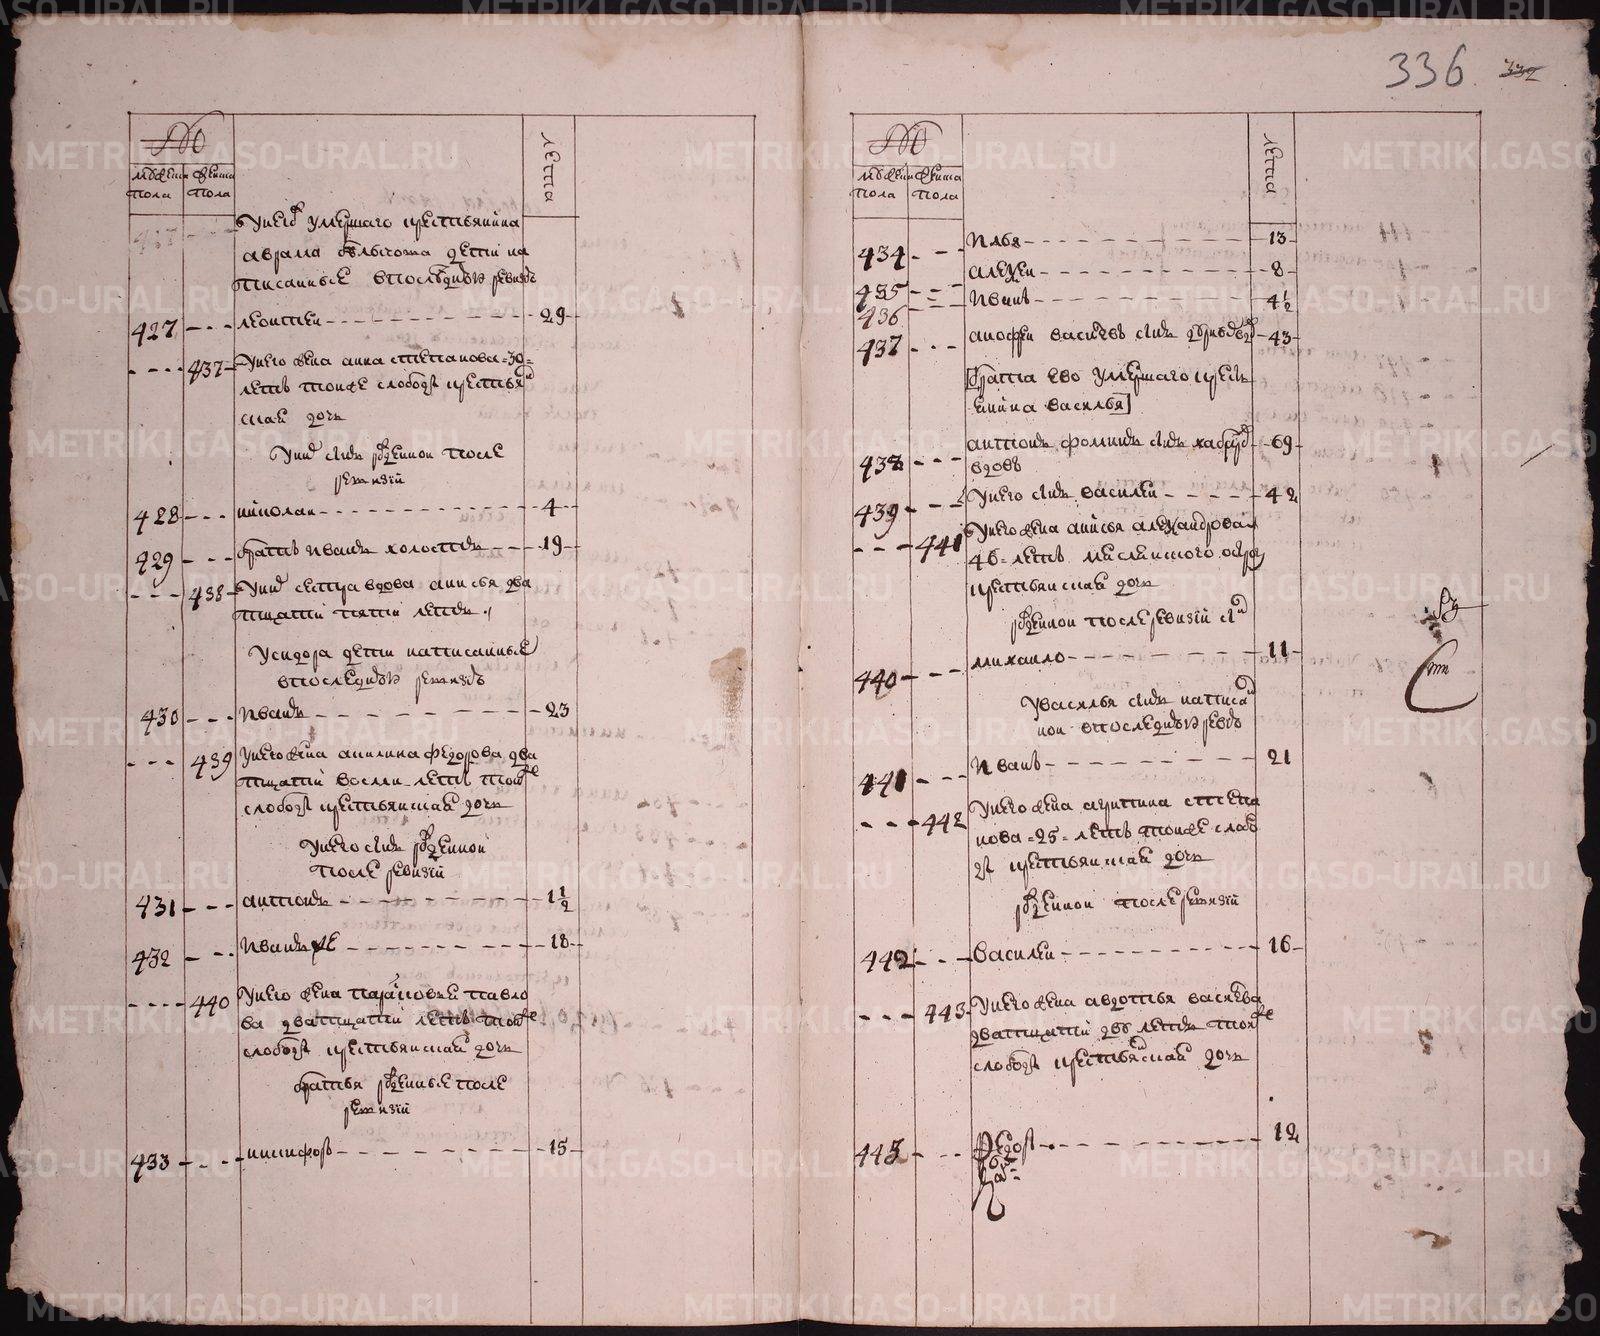 336 332
№
мужеска женска
пола пола
лета
427 У него умершаго крестьянина
аврама дети на
писанные впоследнюю ревизию
427 леонтеи 29
437 У него жена анна степанова 30
летъ тоиже слободы крестьян
ская дочь
У них сынъ рожденнои после
ревизии
428 николаи 4
429 братъ иванъ холостъ 19
438 У них сестра вдова анисья два
тцати пяти летъ
У сидора дети написанные
впоследнюю ревизию
430 иванъ 23
439 У него жена акилина федорова два
тцати восми летъ тоиже
слободы крестьянская дочь
У него сынъ рожденнои
после ревизии
431 антонъ 1½
432 иванъ же 18
440 У него жена парасковья павло
ва дватцати летъ тоиже
слободы крестьянская дочь
братья рожденные после
ревизии
433 никифоръ 15
№
мужеска женска
пола пола
лета
434 Илья 13
435 алексеи 8
436 Иванъ 4½
437 васильевъ сынъ 43
[брата ево умершаго кресть
янина василья]
438 антонъ фоминъ сынъ 69
вдовъ
439 У него сынъ василеи 42
441 У него жена анисья александрова
46 летъ
крестьянская дочь
рожденнои после ревизии сынъ
440 михаило 11
У василья сынъ написан
нои впоследнюю ревизию
441 Иванъ 21
442 У него жена агрипина степа
нова 25 летъ тоиже слобо
ды крестьянская дочь
рожденнои после ревизии
442 василеи 16
443 У него жена авдотья васильева
дватцати дву летъ тоиже
слободы крестьянская дочь
443 Федоръ 12